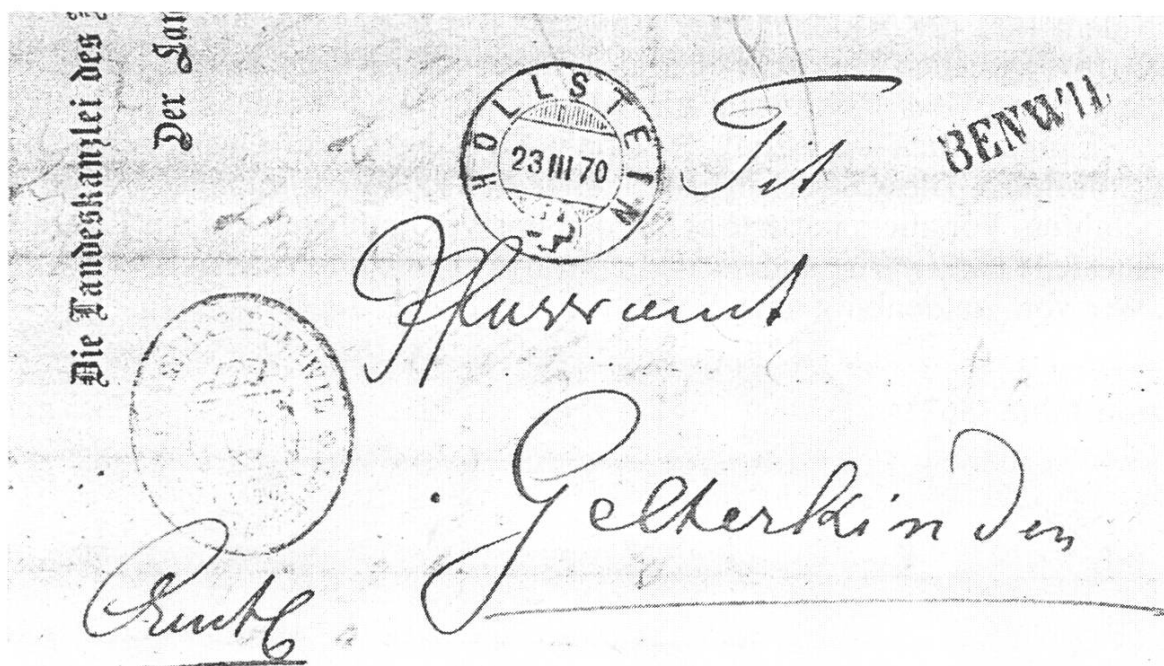 Die Landeskanzlei des
Der Lan
HOLLSTEIN
23 III 70
BENWIL
Tit
Pfarramt
Gelterkinden
Amtl